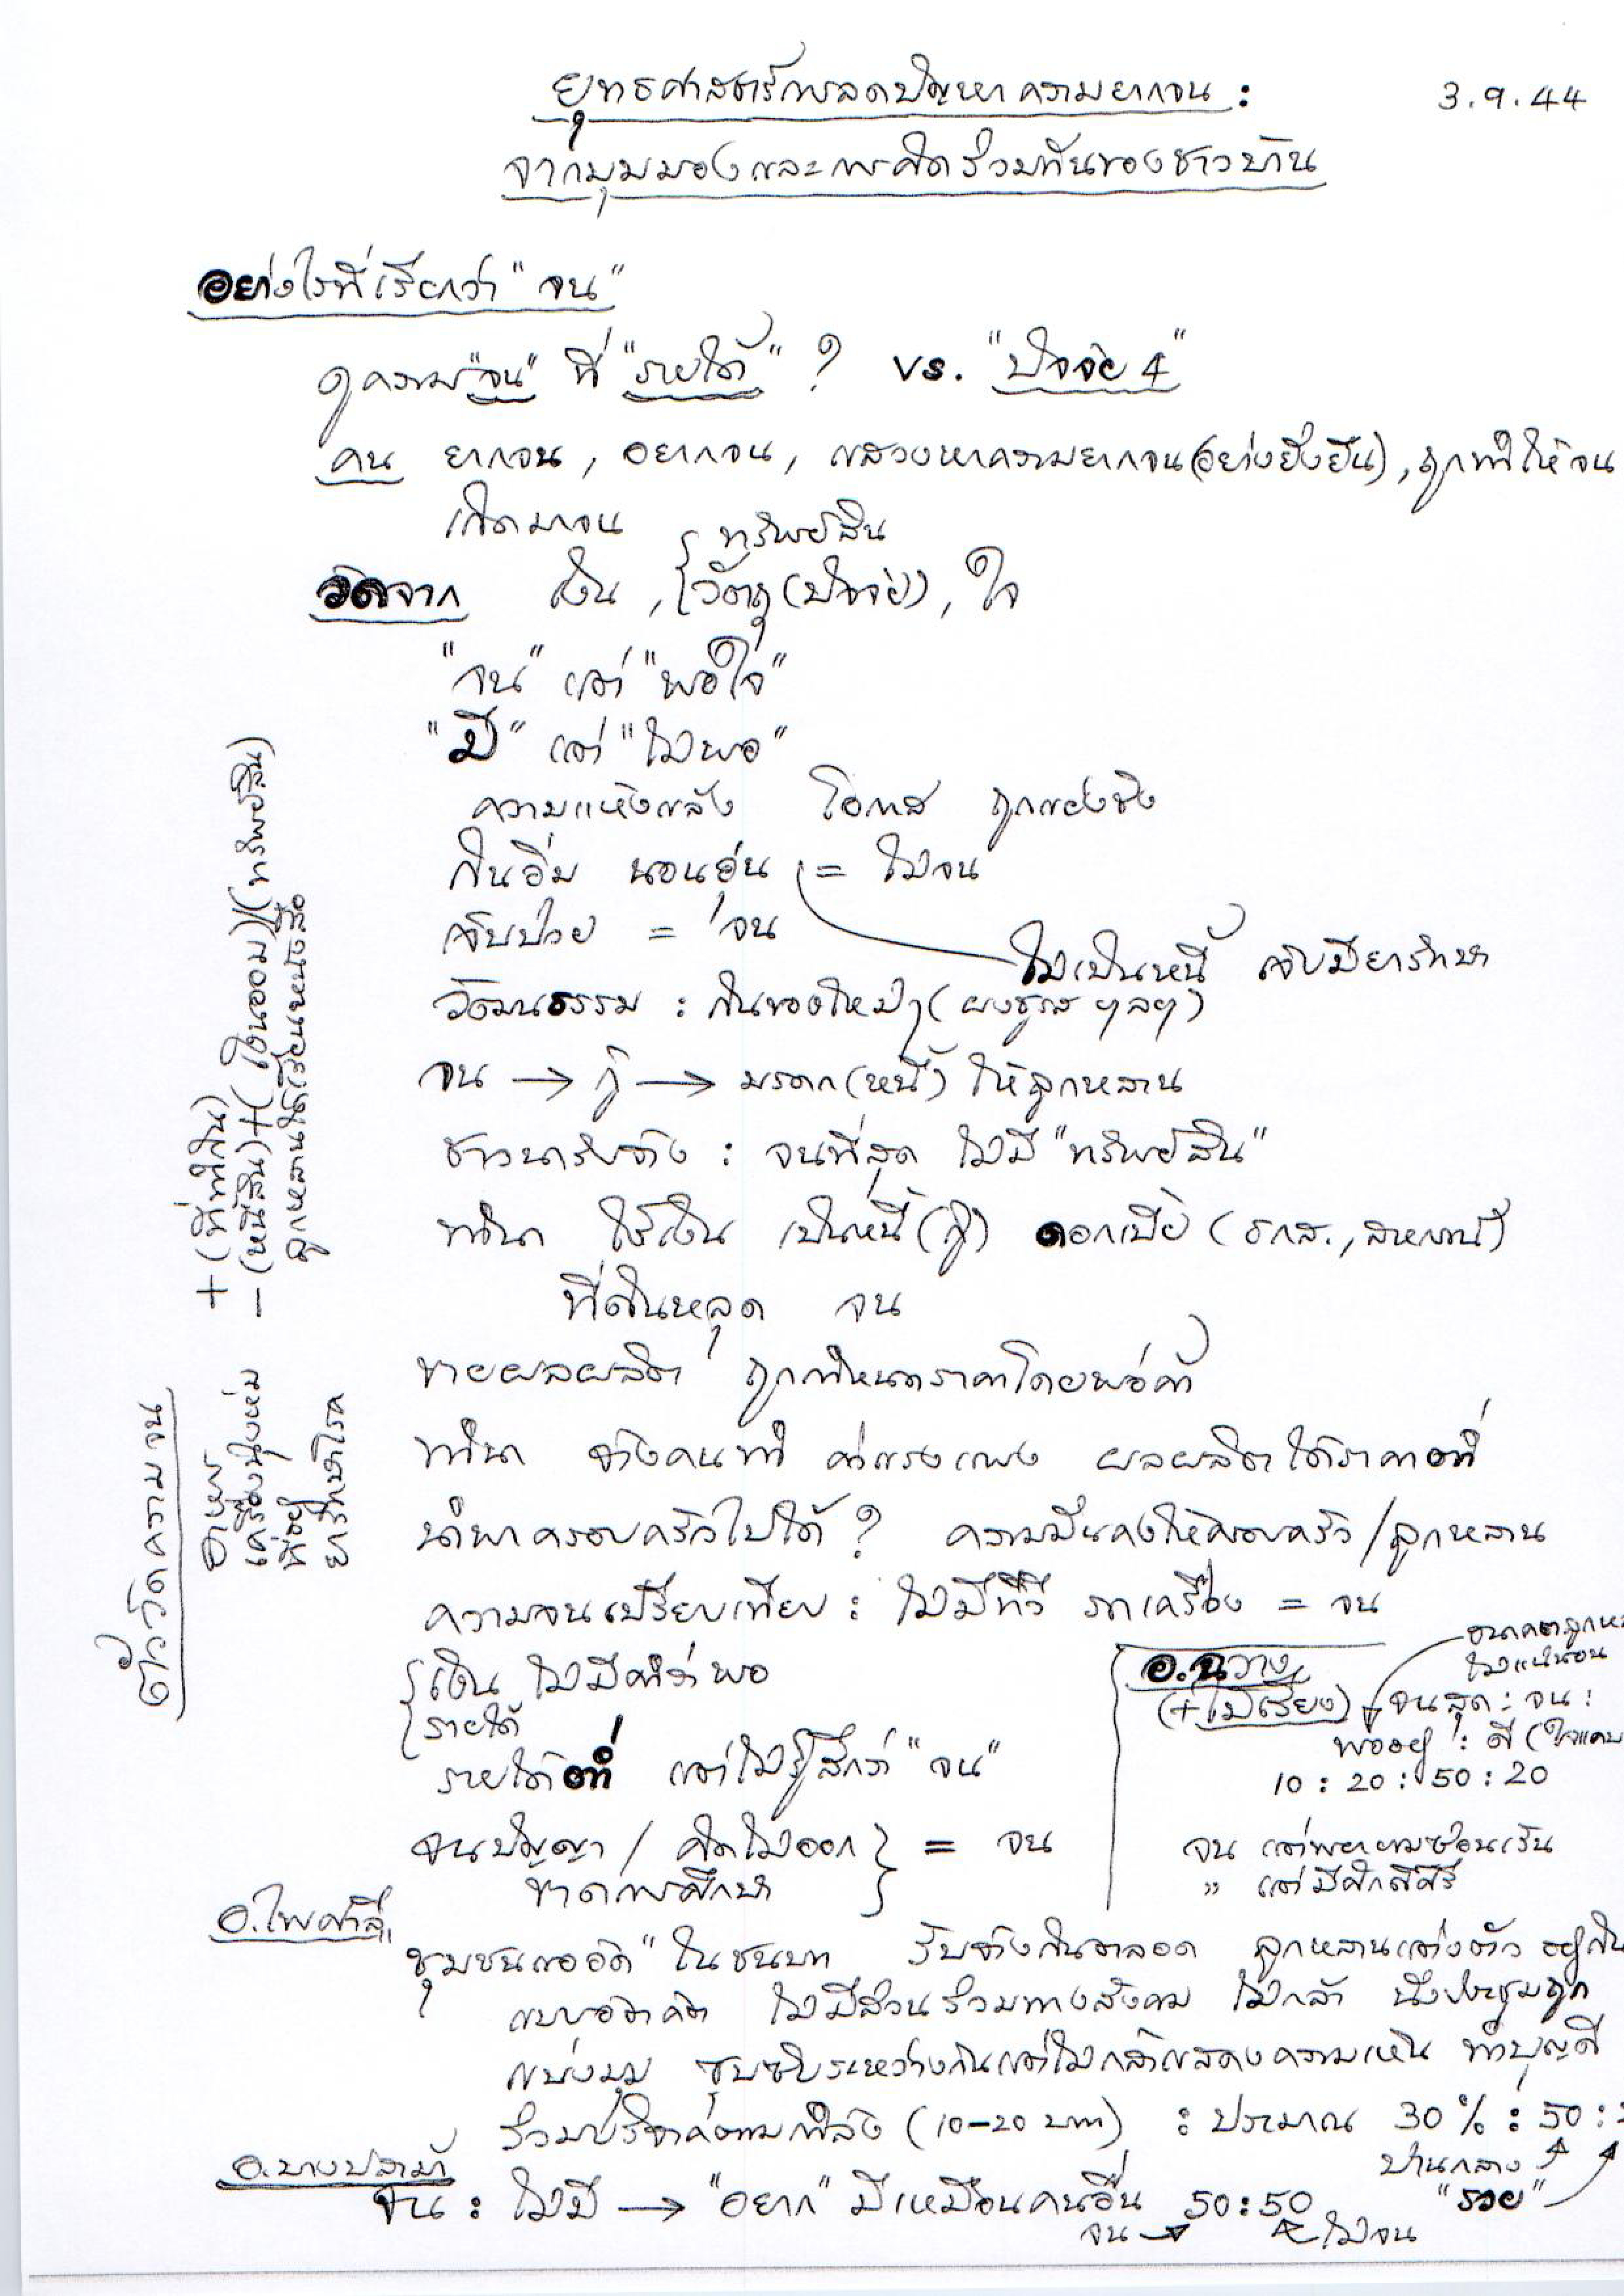 ยุทธศาสตร์การลดปัญหาความยากจน :
3.9.44
จากมุมมองและการคิดร่วมกันของชาวบ้าน
อย่างไรที่เรียกว่า "จน"
ดูความ"จน" ที่ "รายได้" ? vs. "ปัจจัย 4"
คน ยากจน, อยากจน, แสวงหาความยากจน(อย่างยั่งยืน), ถูกทำให้จน
เกิดมาจน
ทรัพย์สิน
วัดจาก เงิน, วัตถุ (ปัจจัย), ใจ
"จน" แต่ "พอใจ"
"มี" แต่ "ไม่พอ"
ความแห้งแล้ง โอกาส ถูกแย่งชิง
กินอิ่ม นอนอุ่น = ไม่จน
เจ็บป่วย = จน
ไม่เป็นหนี้ เจ็บมียารักษา
วัฒนธรรม : กินของใหม่ๆ (ผงชูรส ฯลฯ)
จน → กู้ → มรดก(หนี้) ให้ลูกหลาน
ชาวนารับจ้าง : จนที่สุด ไม่มี "ทรัพย์สิน"
ทำนา ใช้เงิน เป็นหนี้ (กู้) ดอกเบี้ย (ธกส., สหกรณ์)
ที่ดินหลุด จน
ขายผลผลิต ถูกกำหนดราคาโดยพ่อค้า
ทำนา จ้างคนทำ ค่าแรงแพง ผลผลิตได้ราคาต่ำ
นำพาครอบครัวไปได้ ? ความมั่นคงให้ครอบครัว/ลูกหลาน
ความจนเปรียบเทียบ : ไม่มีทีวี รถเครื่อง = จน
เงิน ไม่มีคำว่าพอ
รายได้
รายได้ต่ำ แต่ไม่รู้สึกว่า "จน"
จนปัญญา / คิดไม่ออก = จน
ขาดการศึกษา
ตัววัดความจน
อาหาร
เครื่องนุ่งห่ม
ที่อยู่
ยารักษาโรค
+ (ที่ทำกิน)
- (หนี้สิน) + (เงินออม)/(ทรัพย์สิน)
ลูกหลานได้เรียนหนังสือ
อ.ฉวาง
(+ไม้เรียง)
อนาคตลูกห
ไม่แน่นอน
จนสุด : จน :
พออยู่ : ดี (
10 : 20 : 50 : 20
จน แต่พยายามซ่อนเร้น
" แต่มีศักดิ์ศรี
อ.ไพศาลี
"ชุมชนแออัด" ในชนบท รับจ้างกินตลอด ลูกหลานแต่งตัว อยู่กิน
แบบอัตคัด ไม่มีส่วนร่วมทางสังคม ไม่กล้า นั่งประชุมถูก
แบ่งมุม ซุบซิบระหว่างกันแต่ไม่กล้าแสดงความเห็น ทำบุญดี
ร่วมบริจาคตามกำลัง (10-20 บาท) : ประมาณ 30% : 50 :
ปานกลาง
"รวย"
อ.บางปลาม้า
จน : ไม่มี → "อยาก" มีเหมือนคนอื่น 50:50
จน → ← ไม่จน